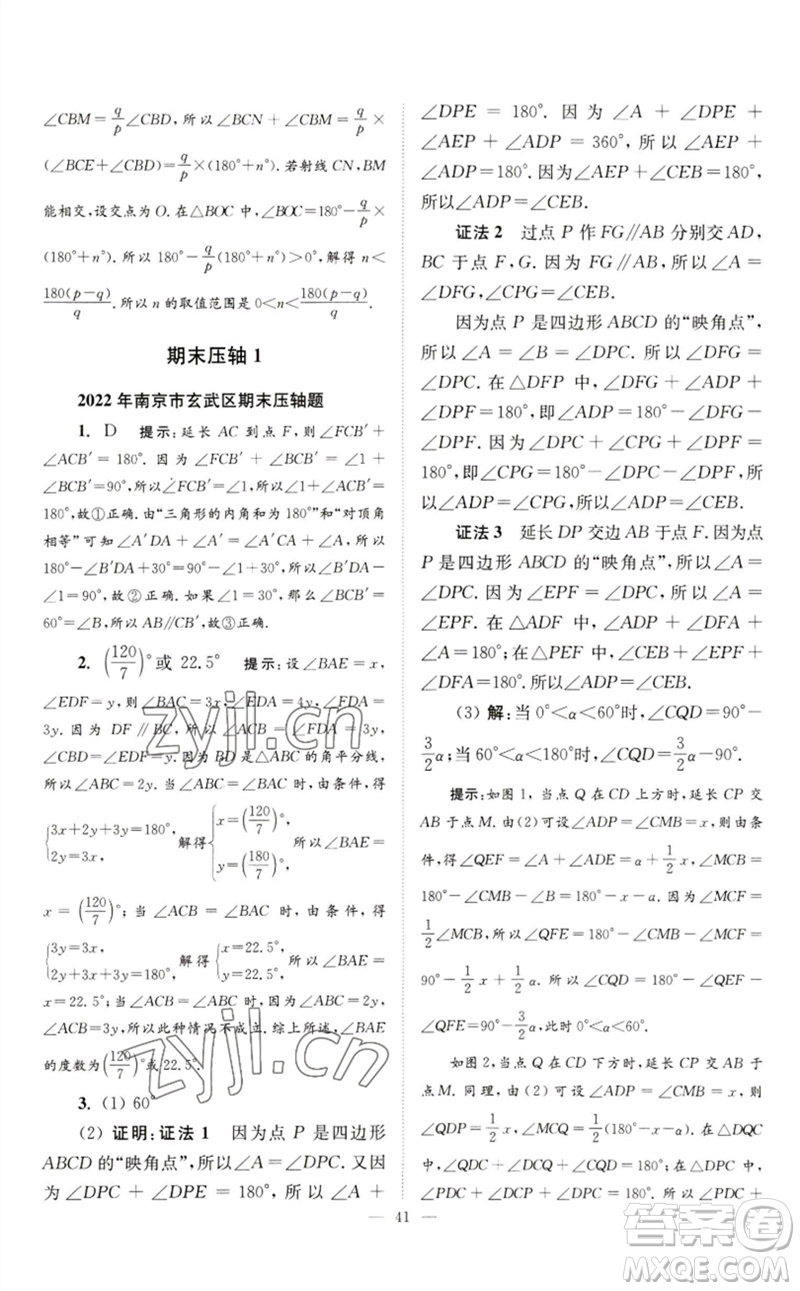 ∠CBM=q/p∠CBD,所以∠BCN+∠CBM=q/p×
(∠BCE+∠CBD)=q/p×(180°+n°).若射线CN,BM
能相交,设交点为O.在△BOC中,∠BOC=180°-q/p×
(180°+n°).所以180°-q/p(180°+n°)>0°,解得n<
180(p-q)/q.所以n的取值范围是0<n<180(p-q)/q.
期末压轴1
2022年南京市玄武区期末压轴题
1. D 提示:延长AC到点F,则∠FCB′+
∠ACB′=180°.因为∠FCB′+∠BCB′=∠1+
∠BCB′=90°,所以∠FCB′=∠1.所以∠1+∠ACB′=
180°,故①正确.由“三角形的内角和为180°”和“对顶角
相等”可知∠A′DA+∠A′=∠1+∠A′CA,所以
180°-∠B′DA+∠A′=∠1+∠A′CA.所以∠B′DA+
∠1=90°,故②正确.如果∠1=30°,那么∠BCB′=
60°=∠B,所以AB∥CB′,故③正确.
2. (120/7)°或22.5° 提示:设∠BAE=x,
∠EDF=y,则∠BAC=3x,∠EDA=4y,∠FDA=
3y.因为DF∥BC,所以∠ACB=∠FDA=3y,
∠CBD=∠EDF=y.因为BD是△ABC的角平分线,
所以∠ABC=2y.当∠ABC=∠BAC时,由条件,得
{3x+2y+3y=180°, 2y=3x, 解得{x=(120/7)°, y=(180/7)°, 所以∠BAE=
x=(120/7)°;当∠ACB=∠BAC时,由条件,得
{3y=3x, 2y+3x+3y=180°, 解得{x=22.5°, y=22.5°, 所以∠BAE=
x=22.5°;当∠ACB=∠ABC时,因为∠ABC=2y,
∠ACB=3y,所以此种情况不成立.综上所述,∠BAE
的度数为(120/7)°或22.5°.
3. (1) 60°
(2) 证明:证法1 因为点P是四边形
ABCD的“映角点”,所以∠A=∠DPC.又因
为∠DPC+∠DPE=180°,所以∠A+
∠DPE=180°.因为∠A+∠DPE+
∠AEP+∠ADP=360°,所以∠AEP+
∠ADP=180°.因为∠AEP+∠CEB=180°,
所以∠ADP=∠CEB.
证法2 过点P作FG∥AB分别交AD,
BC于点F,G.因为FG∥AB,所以∠A=
∠DFG,∠CPG=∠CEB.
因为点P是四边形ABCD的“映角点”,
所以∠A=∠B=∠DPC.所以∠DFG=
∠DPC.在△DFP中,∠DFG+∠ADP+
∠DPF=180°,即∠ADP=180°-∠DFG-
∠DPF.因为∠DPC+∠CPG+∠DPF=
180°,即∠CPG=180°-∠DPC-∠DPF,所
以∠ADP=∠CPG.所以∠ADP=∠CEB.
证法3 延长DP交边AB于点F.因为点
P是四边形ABCD的“映角点”,所以∠A=
∠DPC.因为∠EPF=∠DPC,所以∠A=
∠EPF.在△ADF中,∠ADP+∠DFA+
∠A=180°;在△PEF中,∠CEB+∠EPF+
∠DFA=180°.所以∠ADP=∠CEB.
(3) 解:当0°<α<60°时,∠CQD=90°-
3/2α;当60°<α<180°时,∠CQD=3/2α-90°.
提示:如图1,当点Q在CD上方时,延长CP交
AB于点M.由(2)可设∠ADP=∠CMB=x,则由条
件,得∠QEF=∠A+∠ADE=α+1/2x,∠MCB=
180°-∠CMB-∠B=180°-x-α.因为∠MCF=
1/2∠MCB,所以∠QFE=180°-∠CMB-∠MCF=
90°-1/2x+1/2α.所以∠CQD=180°-∠QEF-
∠QFE=90°-3/2α,此时0°<α<60°.
如图2,当点Q在CD下方时,延长CP交AB于
点M.同理,由(2)可设∠ADP=∠CMB=x,则
∠QDP=1/2x,∠MCQ=1/2(180°-x-α).在△CDQ
中,∠QDC+∠DCQ+∠CQD=180°,所以
∠PDC+∠DCP=180°-∠DPC.所以∠PDC+
— 41 —
zyjl.cn
zyjl.cn
答案卷
MXQE.COM